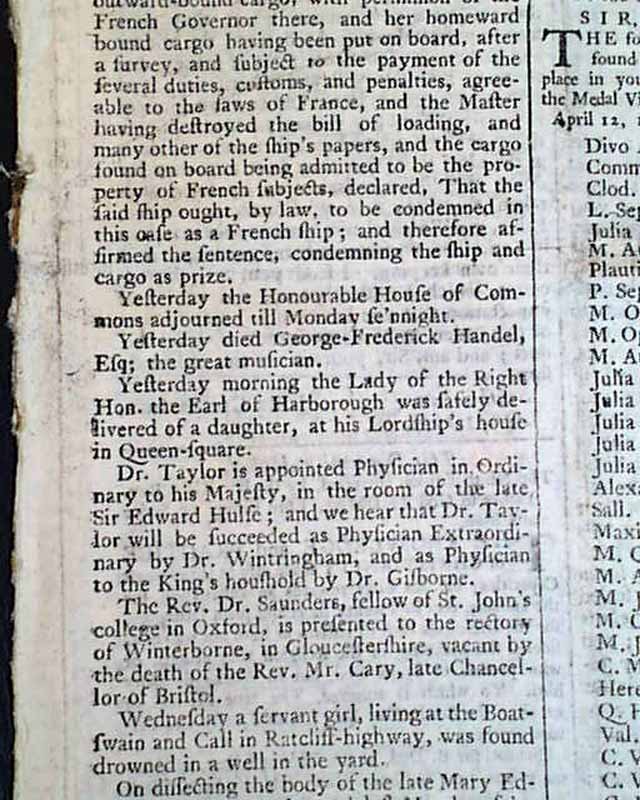 outward-bound cargo, with permission of the
French Governor there, and her homeward
bound cargo having been put on board, after
a ſurvey, and ſubject to the payment of the
ſeveral duties, cuſtoms, and penalties, agree-
able to the laws of France, and the Maſter
having deſtroyed the bill of loading, and
many other of the ſhip's papers, and the cargo
found on board being admitted to be the pro-
perty of French ſubjects, declared, That the
ſaid ſhip ought, by law, to be condemned in
this caſe as a French ſhip; and therefore af-
firmed the ſentence, condemning the ſhip and
cargo as prize.
Yeſterday the Honourable Houſe of Com-
mons adjourned till Monday ſe'nnight.
Yeſterday died George-Frederick Handel,
Eſq; the great muſician.
Yeſterday morning the Lady of the Right
Hon. the Earl of Harborough was ſafely de-
livered of a daughter, at his Lordſhip's houſe
in Queen-ſquare.
Dr. Taylor is appointed Phyſician in Ordi-
nary to his Majeſty, in the room of the late
Sir Edward Hulſe; and we hear that Dr. Tay-
lor will be ſucceeded as Phyſician Extraordi-
nary by Dr. Wintringham, and as Phyſician
to the King's houſhold by Dr. Giſborne.
The Rev. Dr. Saunders, fellow of St. John's
college in Oxford, is preſented to the rectory
of Winterborne, in Glouceſterſhire, vacant by
the death of the Rev. Mr. Cary, late Chancel-
lor of Briſtol.
Wedneſday a ſervant girl, living at the Boat-
ſwain and Call in Ratcliff-highway, was found
drowned in a well in the yard.
On diſſecting the body of the late Mary Ed-
SIR
THE
found
place in
the Medal
April 12,
Divo
Clod.
L.
Julia
M.
P.
M. O
M.
M. A
Julia
Julia
Julia
Julia
Julia
Sall.
M. C
M.
M.
M.
M.
C. M
Q. H
Val.
C. V
C.